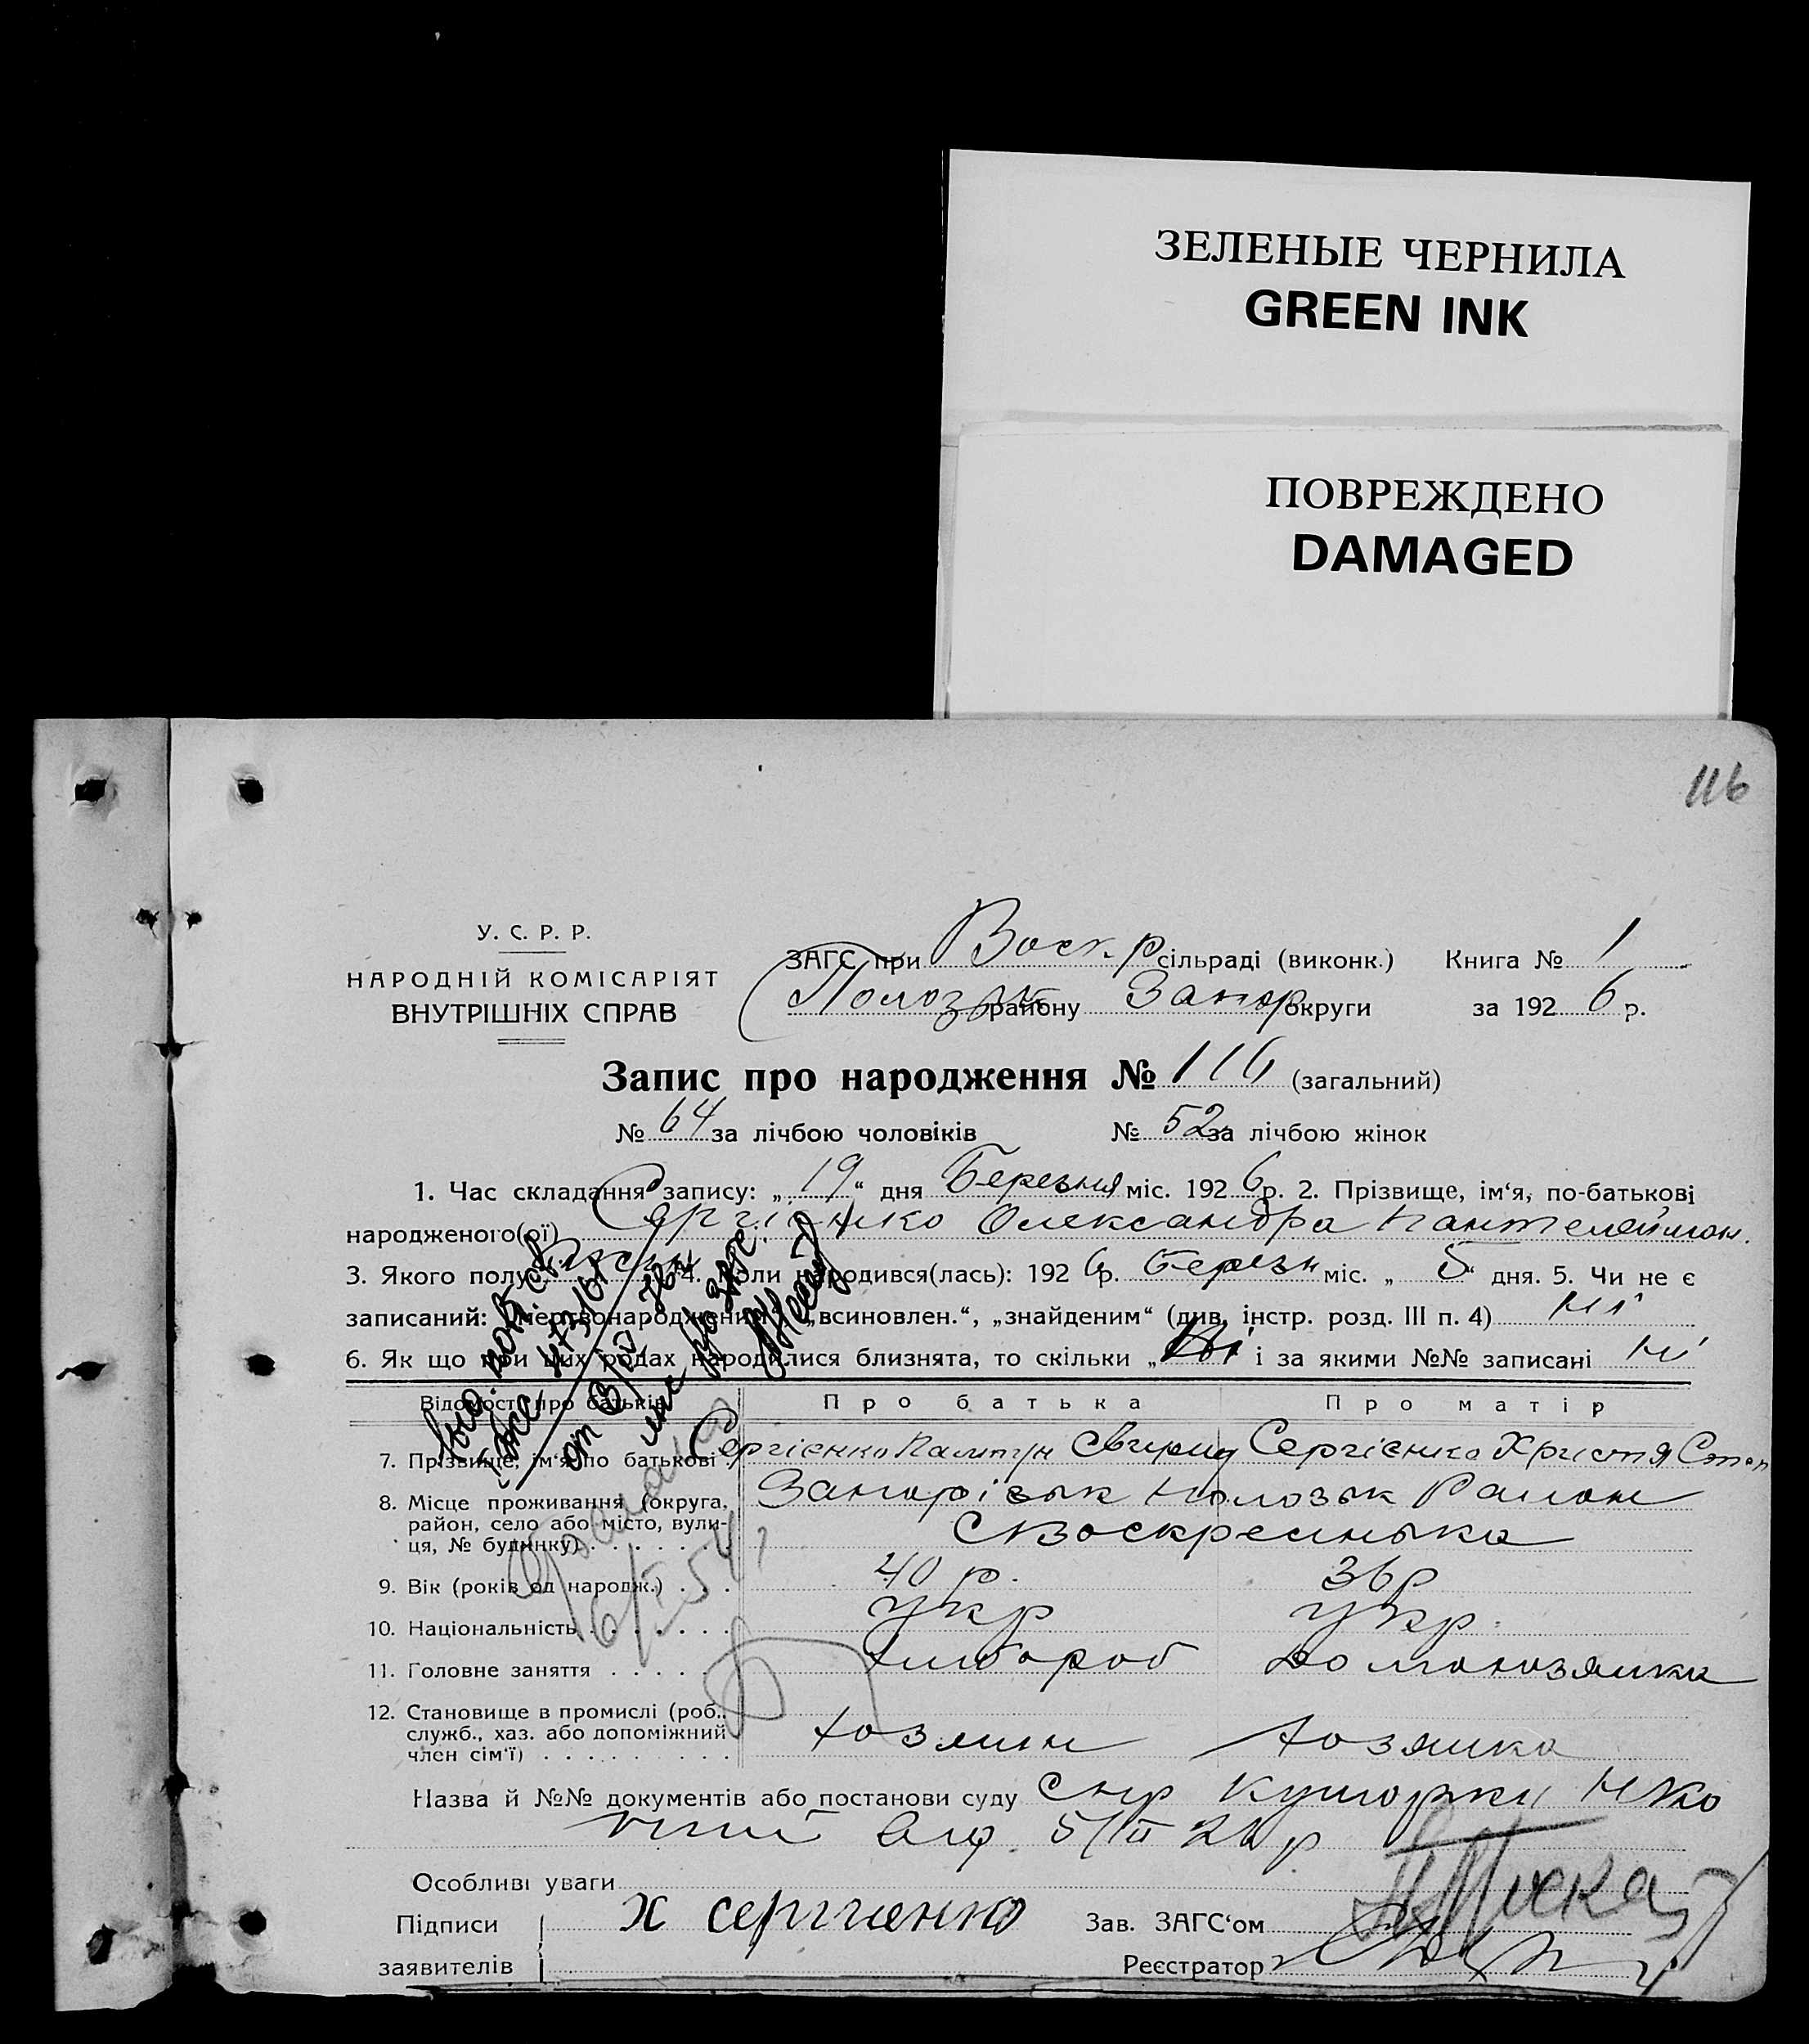 ЗЕЛЕНЫЕ ЧЕРНИЛА
GREEN INK
ПОВРЕЖДЕНО
DAMAGED
116
У. С. Р. Р.
НАРОДНІЙ КОМІСАРІЯТ
ВНУТРІШНІХ СПРАВ
ЗАГС при Воскр сільраді (виконк.) Книга № 1
Полозьк району Запор округи за 1926 р.
Запис про народження № 116 (загальний)
№ 64 за лічбою чоловіків № 52 за лічбою жінок
1. Час складання запису: „19“ дня Березня міс. 1926 р. 2. Прізвище, ім‘я, по-батькові
народженого(ої) Сергієнко Олександра Пантелеймон.
3. Якого полу 4. Коли народився(лась): 1926 р. Березн міс. „5“ дня. 5. Чи не є
записаний: „мертвонародженим“, „всиновлен.“, „знайденим“ (див. інстр. розд. III п. 4) ні
6. Як що при цих родах народилися близнята, то скільки „ні і за якими №№ записані ні
Відомості про батьків Про батька Про матір
7. Прізвище, ім‘я по батькові Сергієнко Сергієнко Христя Степ
8. Місце проживання (округа, Запорізьк Полозьк Район
район, село або місто, вули- с Воскресинька
ця, № будинку)
9. Вік (років од народж.) 40 р. 36 р
10. Національність укр укр.
11. Головне заняття хлібороб домохозяйка
12. Становище в промислі (роб.,
служб., хаз. або допоміжний хозяин хозяйка
член сім‘ї)
Назва й №№ документів або постанови суду
5/III 26 р
Особливі уваги
Підписи х сергиенко Зав. ЗАГС‘ом
заявителів Реєстратор